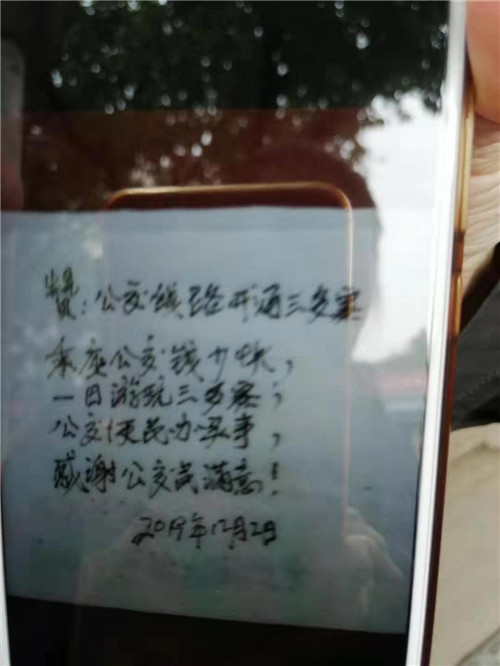 赞：公交线路开通三多寨
乘座公交钱少快，
一日游玩三多寨；
公交便民办实事，
感谢公交满意！
2019年12月2日